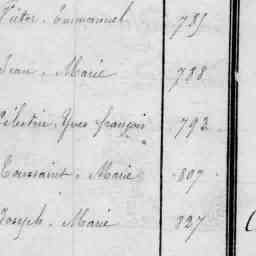 Victor, Emmanuel 735
Jean, Marie 788
Célestin, Yves françois 792
Toussaint, Marie 807
Joseph, Marie 827